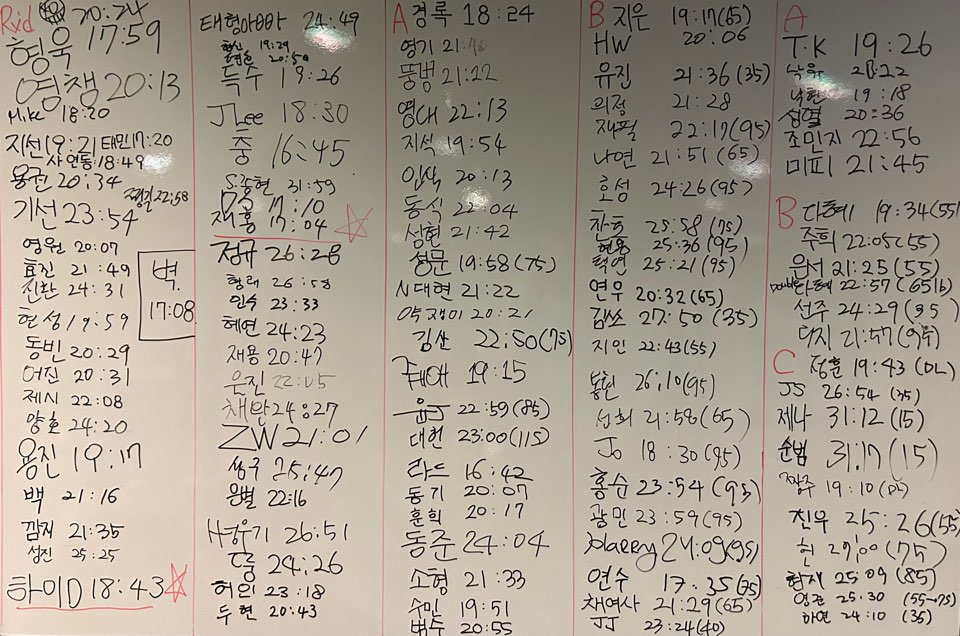 Rxd 20:24
형욱 17:59
영챔 20:13
Mike 18:20
지선 19:21 태민 17:20
사연동:18:49
용권 20:34
22:58
기선 23:54
영원 20:07
효진 21:49
신환 24:31
벽.
17:08
현성 19:59
동빈 20:29
어진 20:31
제시 22:08
양호 24:20
용진 19:17
백 21:16
깜지 21:35
성진 25:25
하이D 18:43
태형아빠 24:49
19:29
20:50
득수 19:26
J Lee 18:30
중 16:45
S.동현 21:59
17:10
재홍 17:04
정규 26:28
형래 26:58
인수 23:33
혜연 24:23
재용 20:47
은진 22:05
채만 24:27
ZW 21:01
쌍구 25:47
은별 22:16
H성우기 26:51
둥 24:26
허의 23:18
두현 20:43
A 경록 18:24
영기 21:40
뚱범 21:22
영대 22:13
지석 19:54
인식 20:13
동식 22:04
성현 21:42
성문 19:58 (75)
시대현 21:22
약재이 20:21
김산 22:50 (75)
19:15
윤J 22:59 (85)
대헌 23:00 (115)
라드 16:42
동기 20:07
훈희 20:17
동준 24:04
소형 21:33
수민 19:51
범수 20:55
B 지우 19:17 (55)
HW 20:06
유진 21:36 (35)
의정 21:28
재필 22:17 (95)
나연 21:51 (65)
효성 24:26 (95)
찬호 25:58 (75)
현웅 25:36 (95)
택연 25:21 (95)
연우 20:32 (65)
김쏘 27:50 (35)
지인 22:43 (55)
봉현 26:10 (95)
선희 21:58 (65)
Jo 18:30 (95)
홍순 23:54 (95)
광민 23:59 (95)
Harry 24:09 (95)
연수 17:35 (75)
채여사 21:29 (65)
JJ 23:24 (40)
A
T.K 19:26
낙유 21:22
낙현 19:18
성열 20:36
조민지 22:56
미피 21:45
B 다혜 19:34 (55)
주희 22:05 (55)
은서 21:25 (55)
Double 다혜 22:57 (65lb)
선주 24:29 (95)
댝지 21:57 (95)
C 정훈 19:43 (DL)
JS 26:54 (35)
제나 31:12 (15)
순범 31:17 (15)
짱주 19:10 (DL)
친우 25:26 (55)
현 27:00 (75)
현재 25:09 (85)
영준 25:30 (55→75)
하연 24:10 (35)